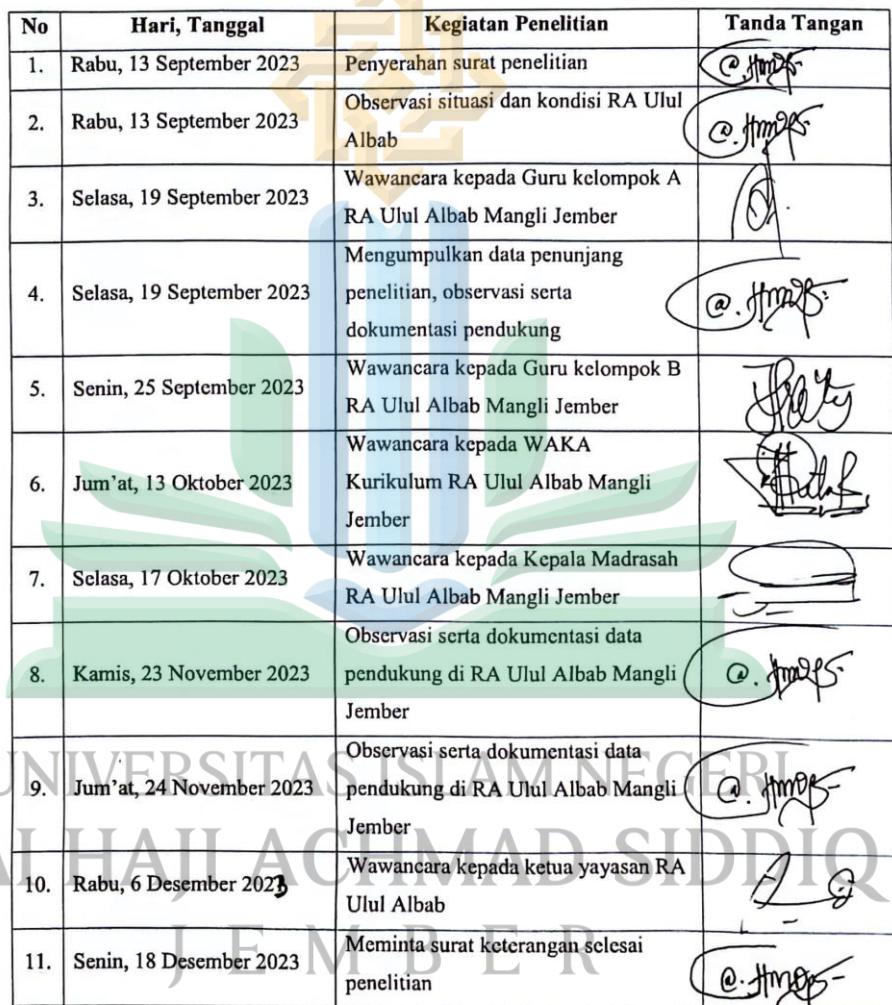 No Hari, Tanggal Kegiatan Penelitian Tanda Tangan
1. Rabu, 13 September 2023 Penyerahan surat penelitian
2. Rabu, 13 September 2023 Observasi situasi dan kondisi RA Ulul
Albab
3. Selasa, 19 September 2023 Wawancara kepada Guru kelompok A
RA Ulul Albab Mangli Jember
4. Selasa, 19 September 2023 Mengumpulkan data penunjang
penelitian, observasi serta
dokumentasi pendukung
5. Senin, 25 September 2023 Wawancara kepada Guru kelompok B
RA Ulul Albab Mangli Jember
6. Jum'at, 13 Oktober 2023 Wawancara kepada WAKA
Kurikulum RA Ulul Albab Mangli
Jember
7. Selasa, 17 Oktober 2023 Wawancara kepada Kepala Madrasah
RA Ulul Albab Mangli Jember
8. Kamis, 23 November 2023 Observasi serta dokumentasi data
pendukung di RA Ulul Albab Mangli
Jember
9. Jum'at, 24 November 2023 Observasi serta dokumentasi data
pendukung di RA Ulul Albab Mangli
Jember
10. Rabu, 6 Desember 2023 Wawancara kepada ketua yayasan RA
Ulul Albab
11. Senin, 18 Desember 2023 Meminta surat keterangan selesai
penelitian
UNIVERSITAS ISLAM NEGERI
AI HAJI ACHMAD SIDDIQ
JEMBER